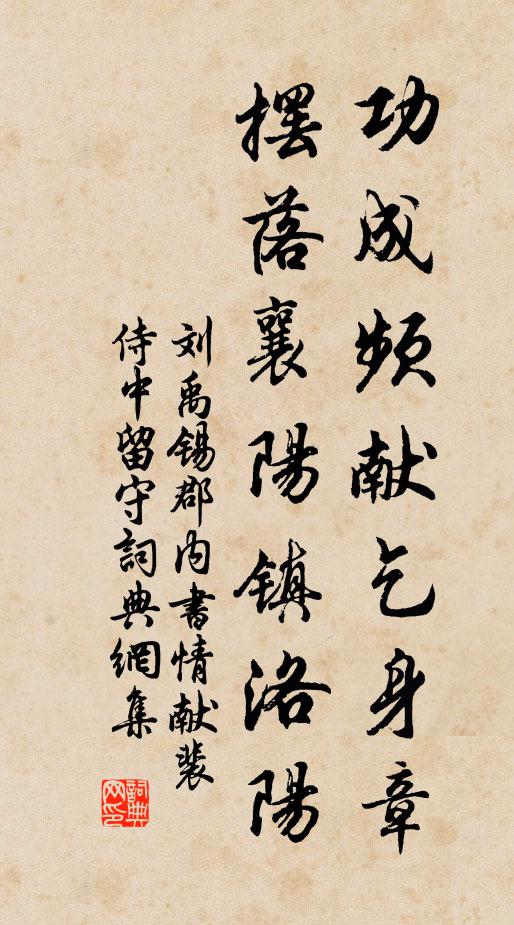 功成频献乞身章
摆落襄陽镇洛陽
刘禹锡郡内書情献裴
侍中留守詞典網集
詞典
网印